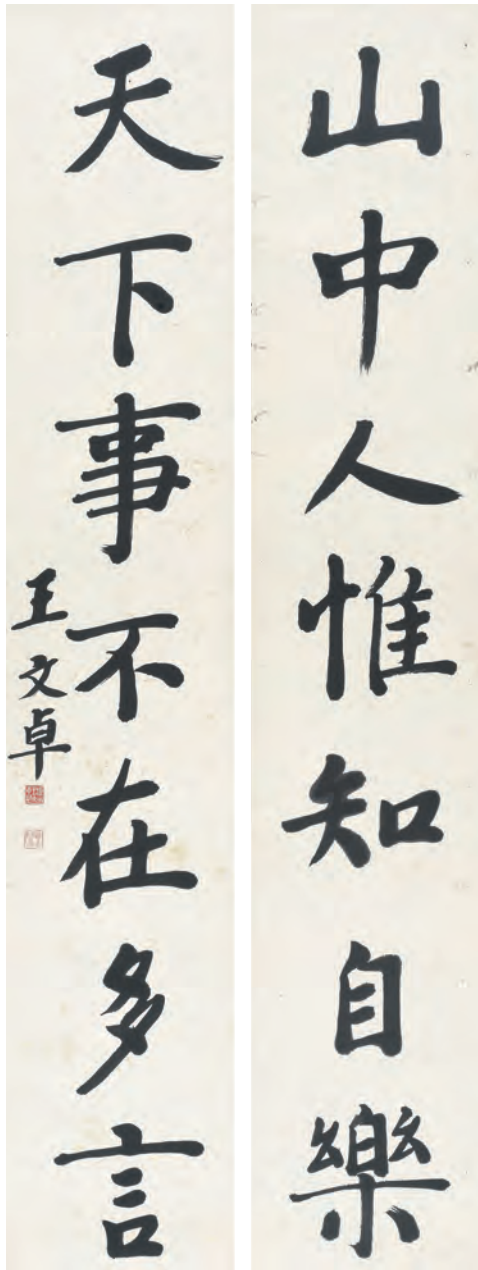 山中人惟知自樂
天下事不在多言
王文卓